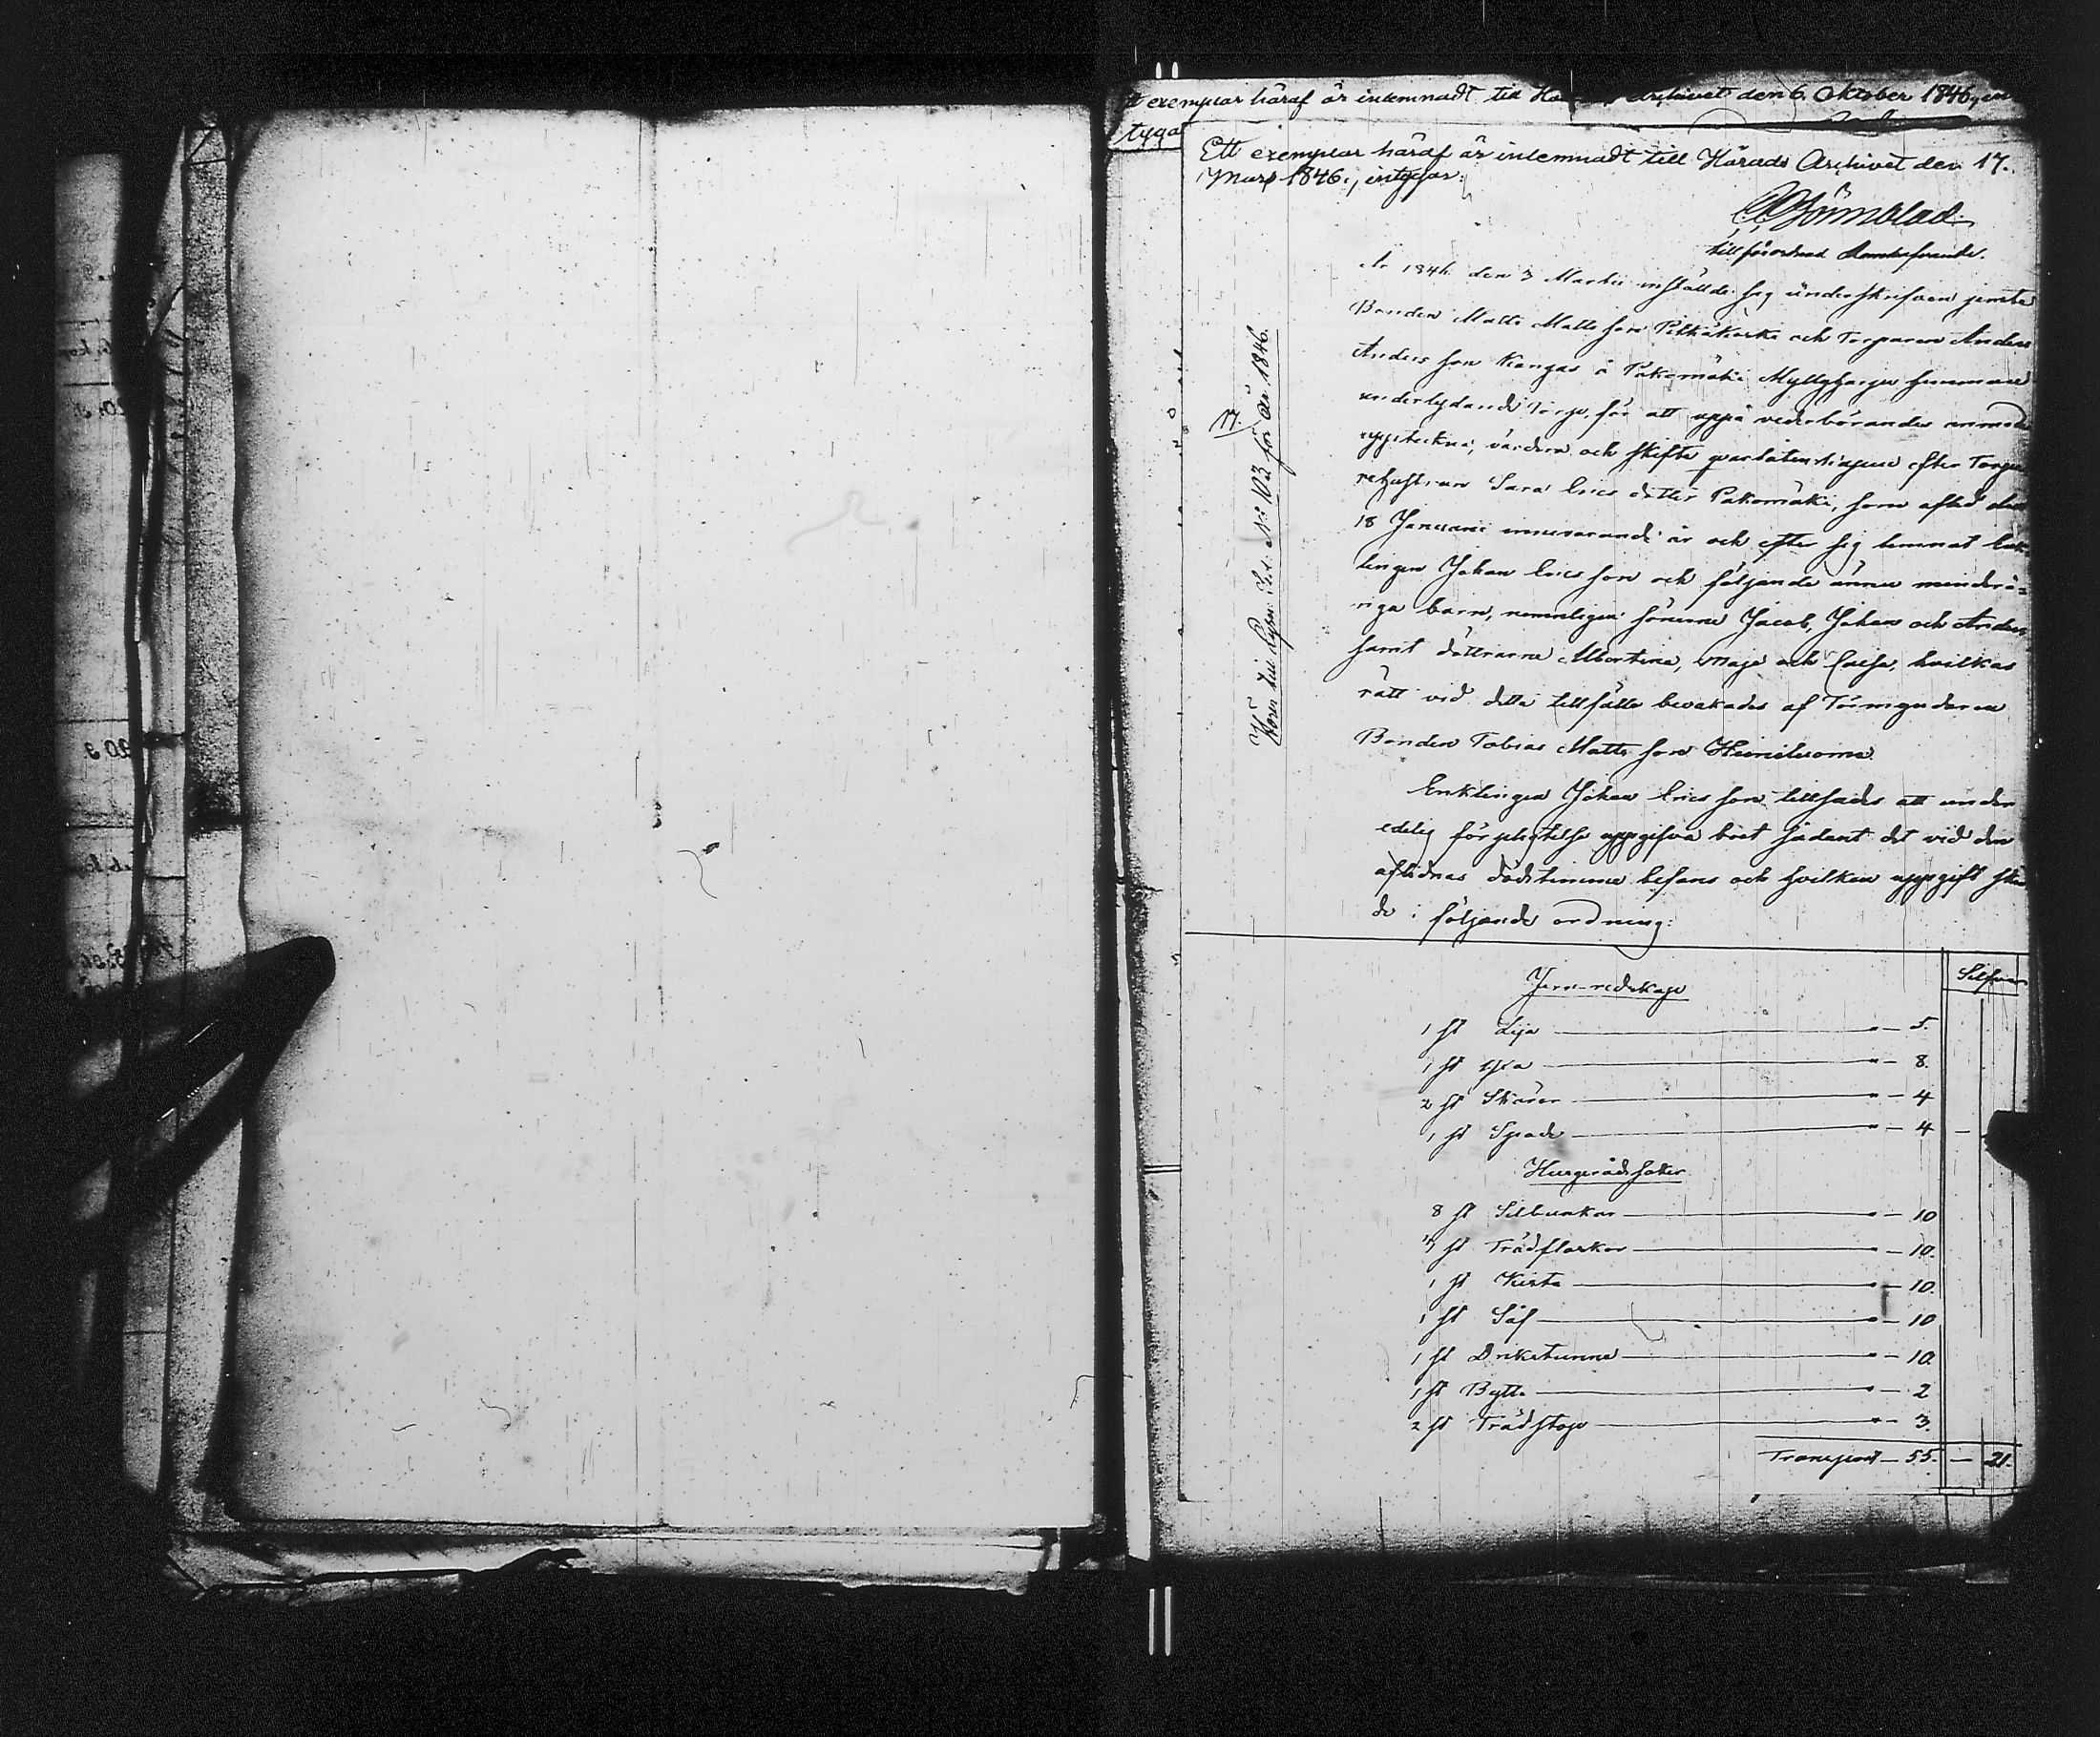 exemplar häraf är inlemnadt till Archivet den 6. Oktober 1846,
tyga
Ett exemplar häraf är inlemnadt till Härads Archivet den 17.
Mars 1846, intygar:
tillförordnad
17.
för år 1846.
År 1846 den 3 Martii inställde sig underskrifven jemte
Bonden Matts Matts son Pitkäkoski och Torparen Anders
Anders son Kangas å Pakomäki
underlydande Torp, för att uppå vederbörandes anmod
uppteckna, värdera och skifta qvarlåtenskapen efter Torpa
rehustrun Sara Erics dotter Pakomäki, som afled den
18 Januarii innevarande år och efter sig lemnat Enk
lingen Johan Erics son och följande ännu minderå=
riga barn, nemnligen sönerne Jacob, Johan och Anders
samt döttrarne Albertina, Maja och Caisa, hvilkas
rätt vid detta tillfälle bevakades af Förmyndaren
Bonden Tobias Matts son
Enklingen Johan Erics son tillsades att under
edelig förpligtelse uppgifva boet sådant det vid den
aflidnas dödstimma befans och hvilken uppgift sked
de i följande ordning:
Silfver
Jern-redskap
1 st Lija " — 5.
1 st Yxa " — 8.
2 st Skäror " — 4
1 st Spade " — 4 —
Husgerådssaker
8 st Silbunkar " — 10
st Trädflaskor " — 10.
1 st Kista " — 10.
1 st Såf " — 10
1 st Drikstunna " — 10.
1 st Bytta " — 2
2 st Trädstop " — 3.
Transport — 55. — 21.